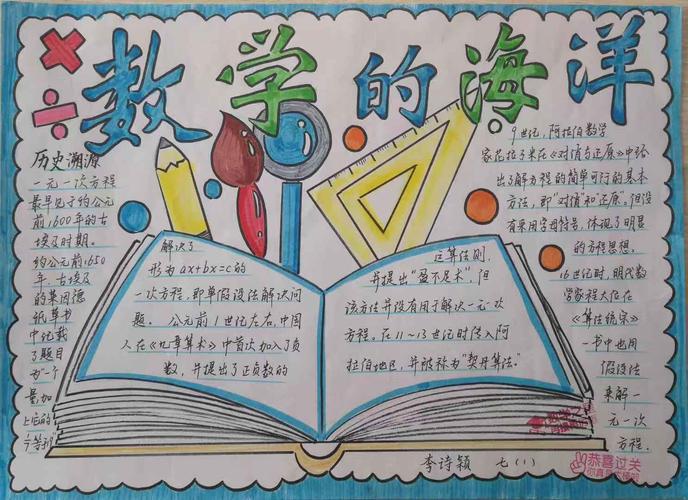 数学的海洋
历史溯源
一元一次方程
最早见于约公元
前1600年的古
埃及时期。
约公元前1650
年,古埃及
的莱因德
纸草书
中记载
了题目
为“一个
量,加
上它的
解决了
形为ax+bx=c的
一次方程,即单假设法解决问
题。 公元前1世纪左右,中国
人在《九章算术》中首次加入了负
数,并提出了正负数的
运算法则,
并提出“盈不足术”,但
该方法并没有用于解决一元一次
方程。在11~13世纪时传入阿
拉伯地区,并被称为“契丹算法”。
9世纪,阿拉伯数学
家花拉子米在《对消与还原》中给
出了解方程的简单可行的基本
方法,即“对消和还原”。但没
有采用字母符号,体现了明显
的方程思想。
16世纪时,明代数
学家程大位在
《算法统宗》
一书中也用
假设法
来解一
元一次
方程.
李诗颖 七(1)
恭喜过关